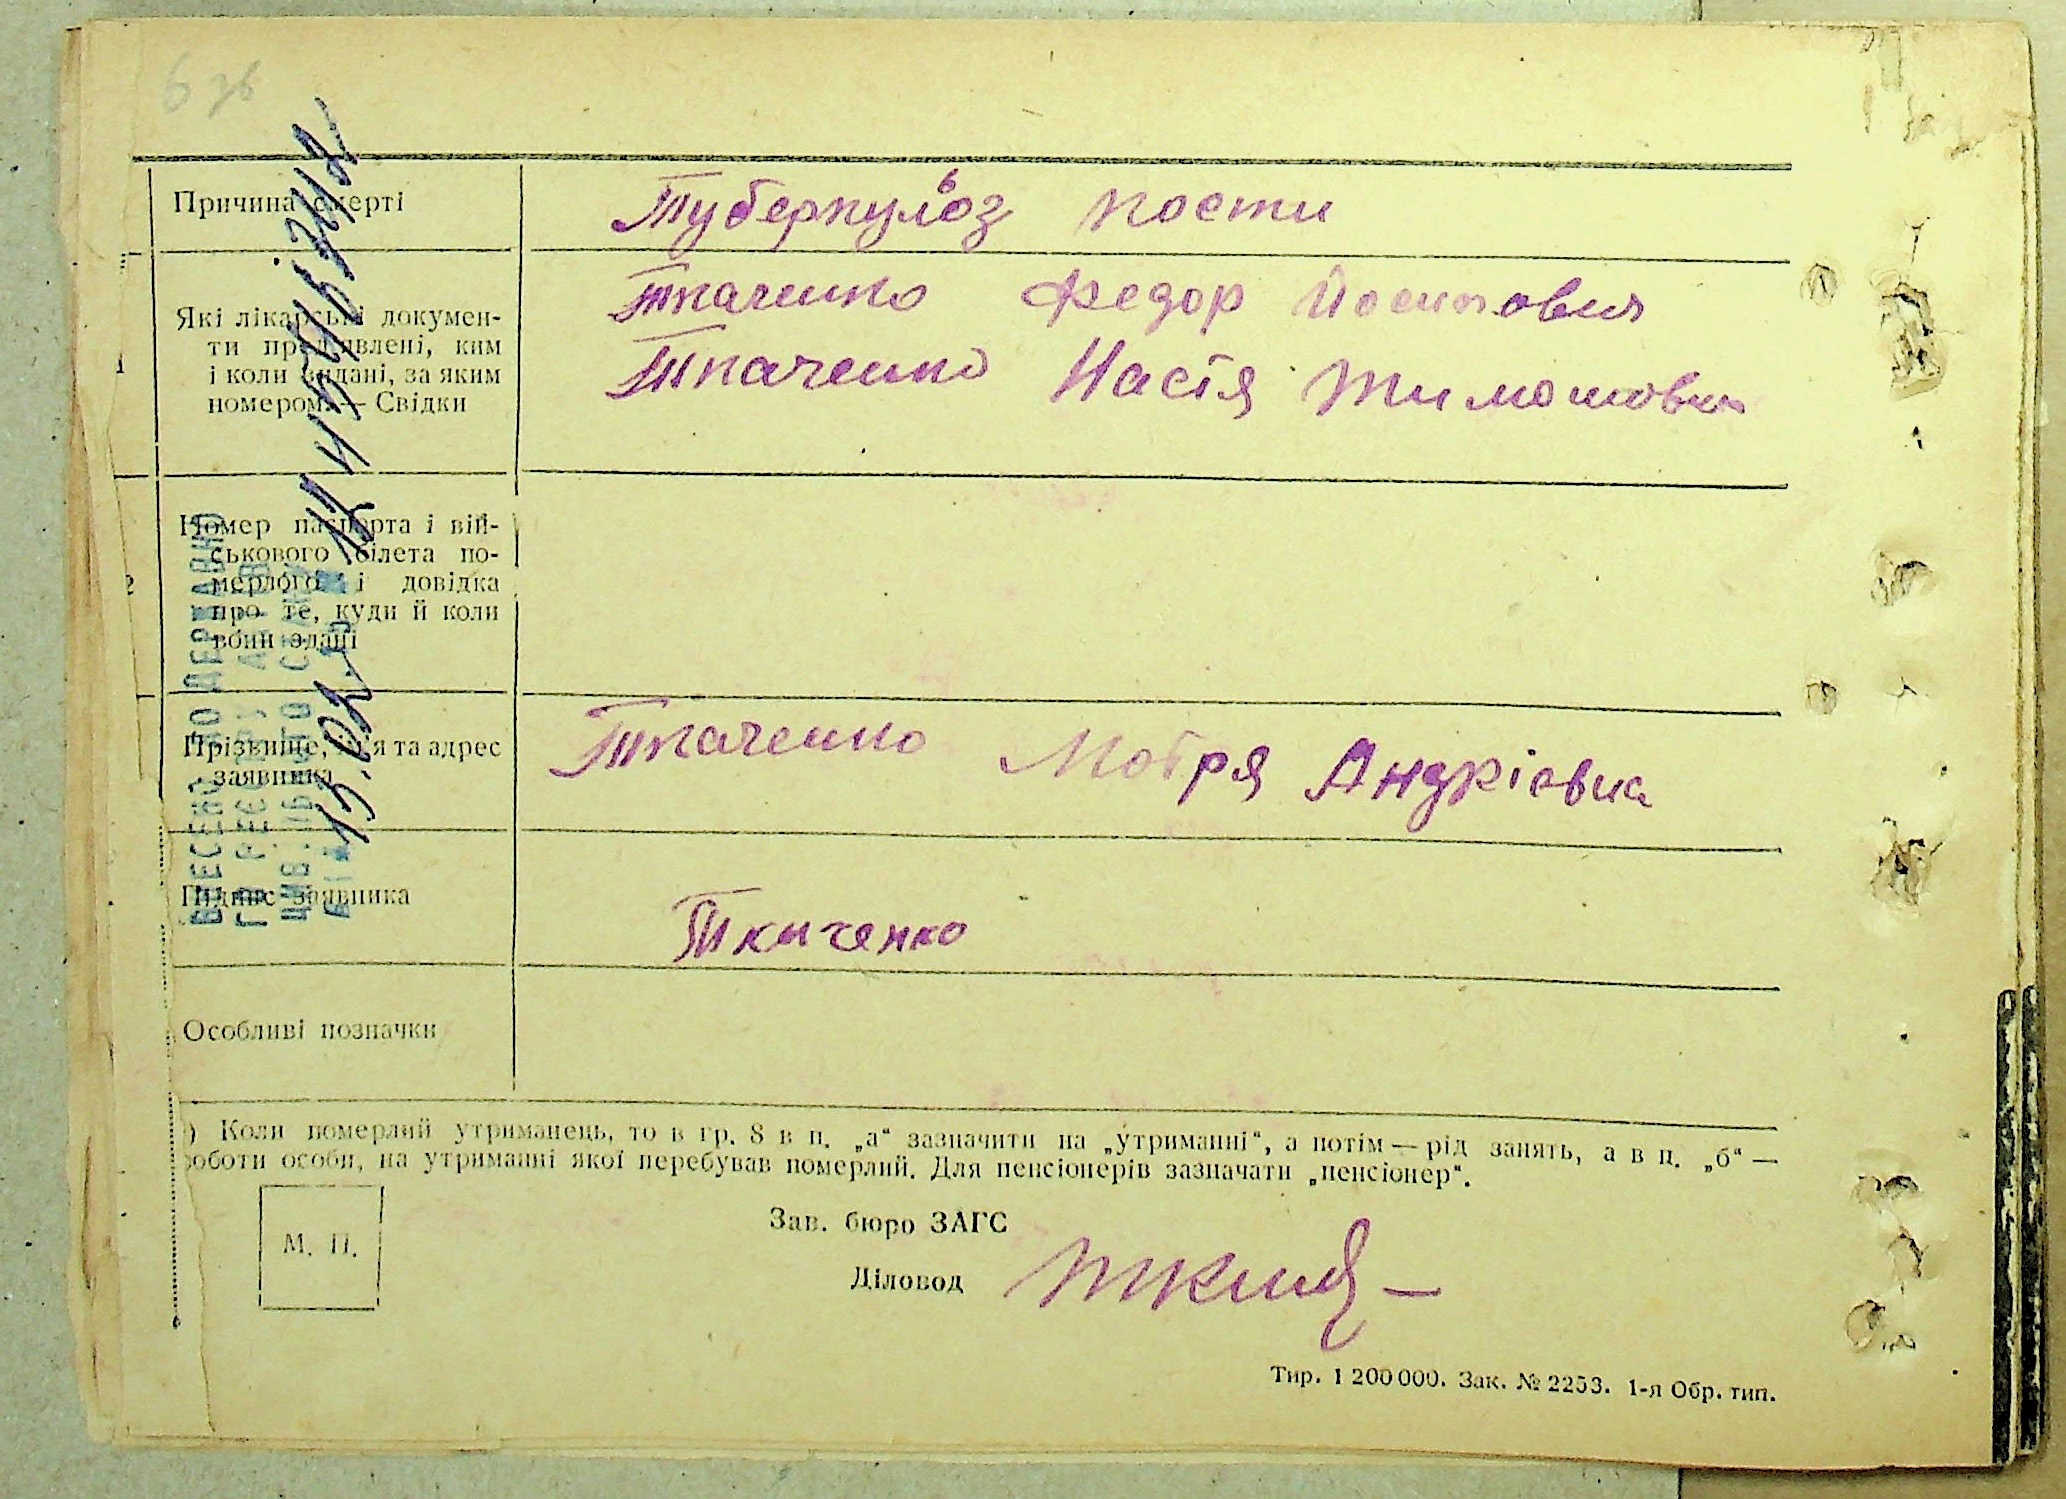 6 зв
Причина смерті
Туберкульоз кости
Які лікарські докумен-
ти пред'явлені, ким
і коли видані, за яким
номером. — Свідки
Ткаченко Федор Йосипович
Ткаченко Настя Тимошовна
Номер паспорта і вій-
ськового білета по-
мерлого і довідка
про те, куди й коли
вони здані
Прізвище, ім'я та адрес
заявника
Ткаченко Мотря Андрієвна
Підпис заявника
Ткаченко
Особливі позначки
) Коли померлий утриманець, то в гр. 8 в п. „а“ зазначити на „утриманні“, а потім — рід занять, а в п. „б“ —
роботи особи, на утриманні якої перебував померлий. Для пенсіонерів зазначати „пенсіонер“.
М. П.
Зав. бюро ЗАГС
Діловод
Тир. 1 200 000. Зак. № 2253. 1-я Обр. тип.
ВНЕСЕНО ДО ДЕРЖАВНО
ГО РЕЄСТРУ АКТІВ
ЦИВІЛЬНОГО СТАНУ